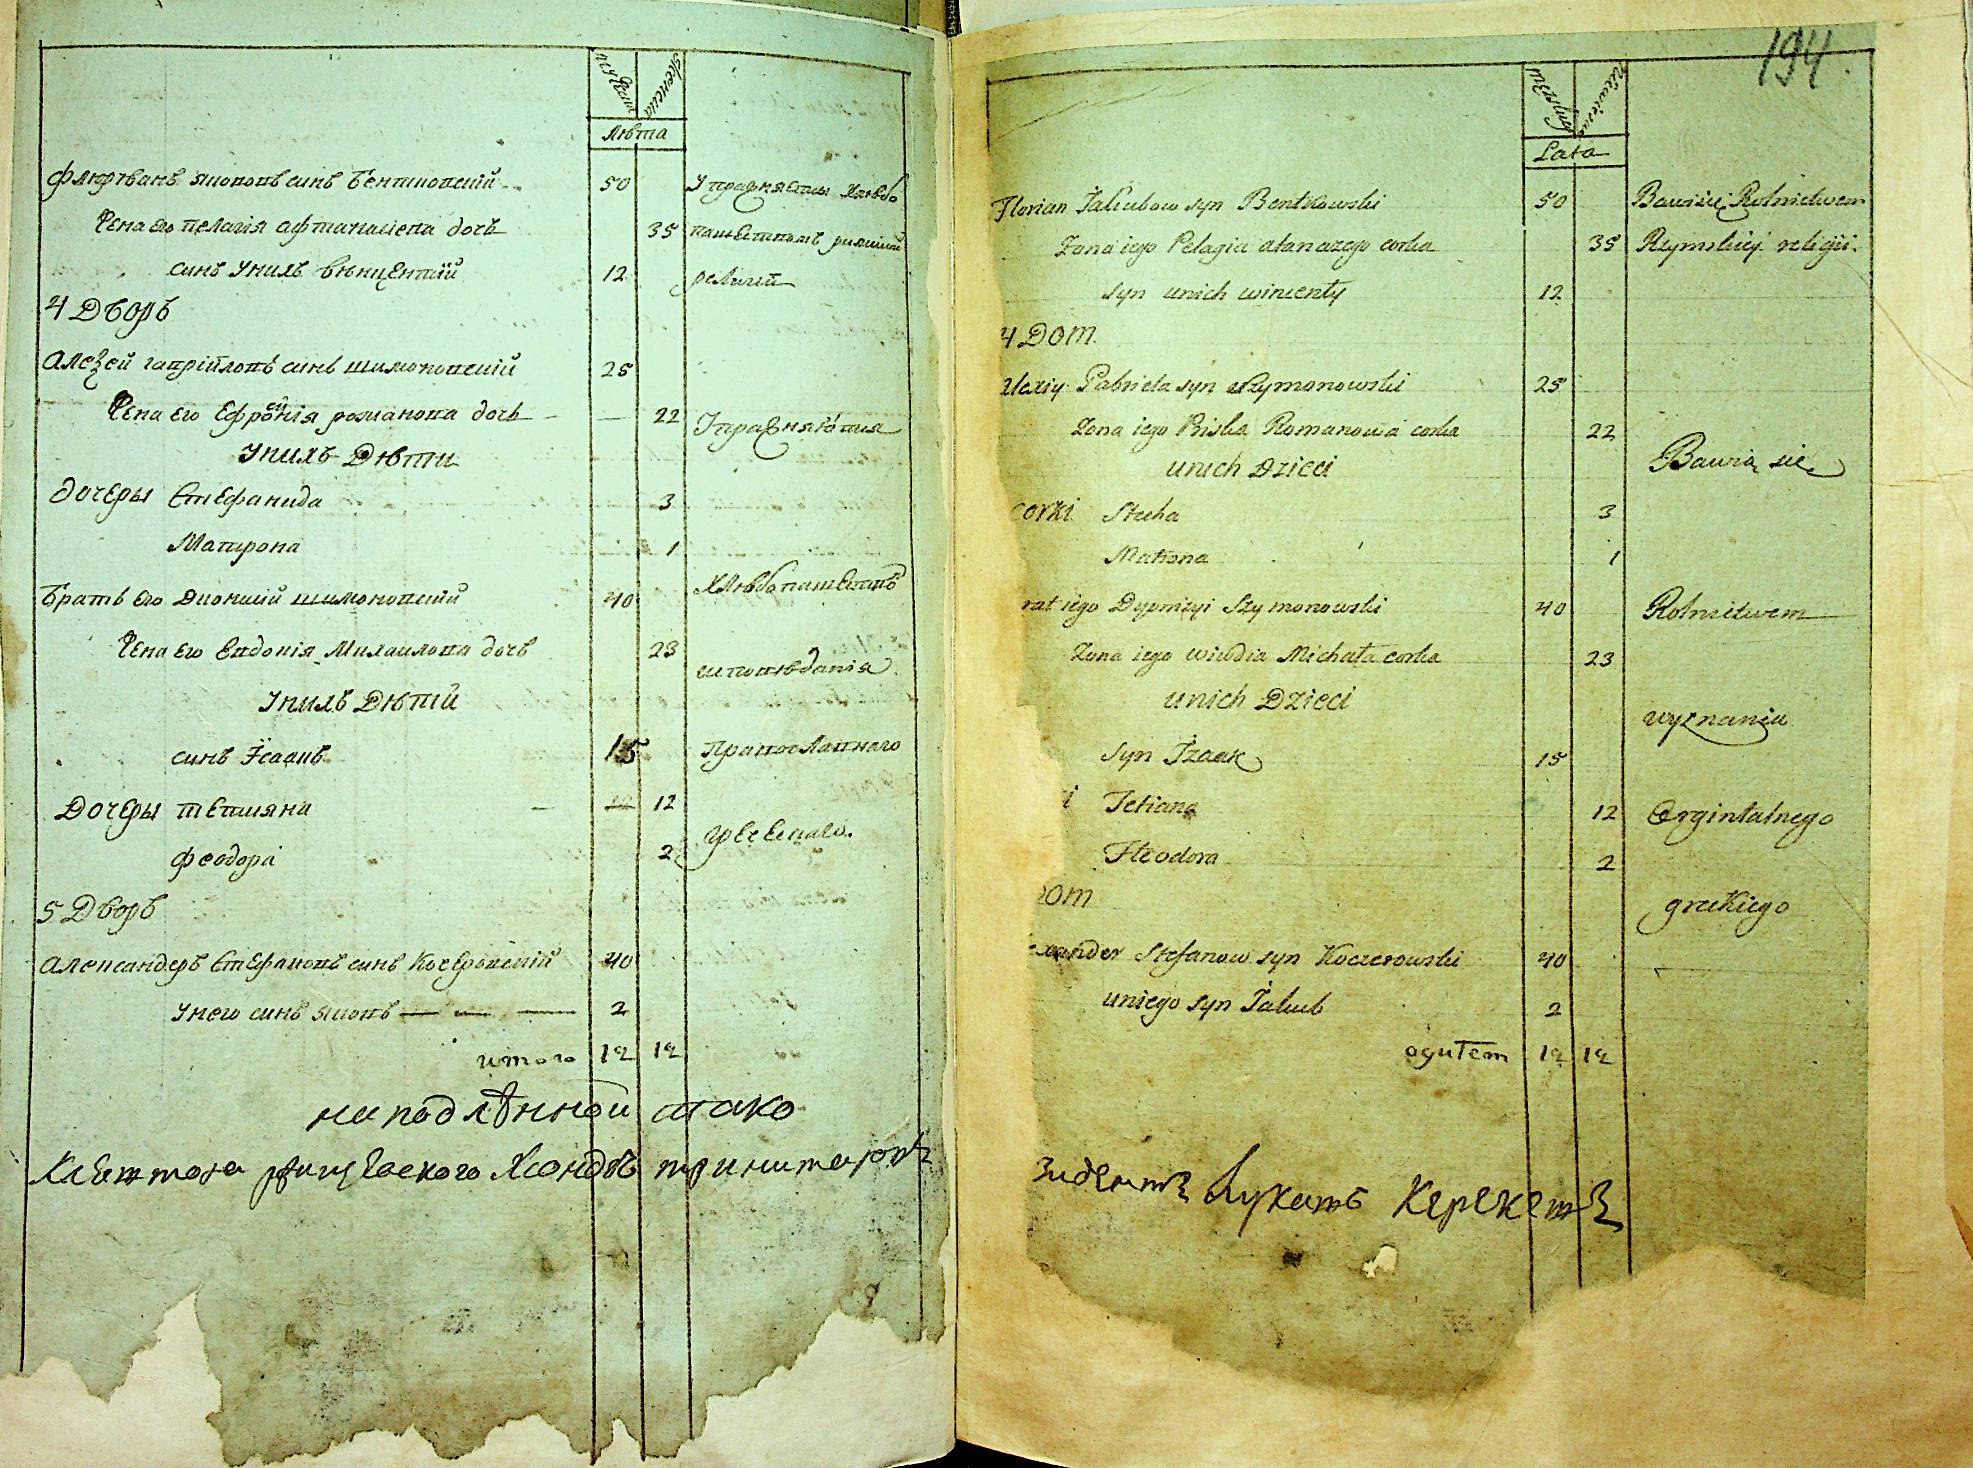 мужеска женска
лѣта
Флорiанъ якововъ синъ Бентковскiй 50 Упражняетца хлѣбо
Жена его пелагiя афтанасiева дочь 35 пашествомъ римской
синъ Унихъ викцентiй 12 религiи
4 Дворъ
Алезей гаврiйловъ синъ шимоновскiй 25
Жена его Ефросинiя романова дочь 22 Упражняютца
Унихъ Дѣти
дочеры Стефанида 3
Матрона 1
Братъ его Дионизiй шимоновскiй 40 хлѣбопашествомъ
Жена его Евдокiя Михаилова дочь 23 исповѣданiя
Унихъ Дѣтiй
синъ Iсаакъ 15 Православнаго
Дочеры тетияна 12
феодора 2 греческаго.
5 Дворъ
Александеръ Стефановъ синъ Кочеровскiй 40
Унего синъ яковъ 2
итого 12 12
на подлѣнной тако
Кляштора Хсендзъ тринитаровъ
194
męskiego niewieście
Lata
Florian Jakubow syn Bentkowski 50 Bawiący Rolnictwem
Zona iego Pelagia atanazego corka 35 Rzymskiej religii.
syn unich wincenty 12
4 DOM.
Alexiy Gabriela syn Szymonowski 25
Zona iego Priska Romanowa corka 22
unich Dzieci Bawią się
corki Steha 3
Matrona 1
rat iego Dyonizyi Szymonowski 40 Rolnictwem
Zona iego wiwdia Michała corka 23
unich Dzieci wyznania
syn Izaak 15
i Tetiana 12 Orgintalnego
Fteodora 2
DOM greckiego
exander Stefanow syn Koczerowski 40
uniego syn Jakub 2
ogułem 12 12
зидентъ Лукашъ Керекетъ